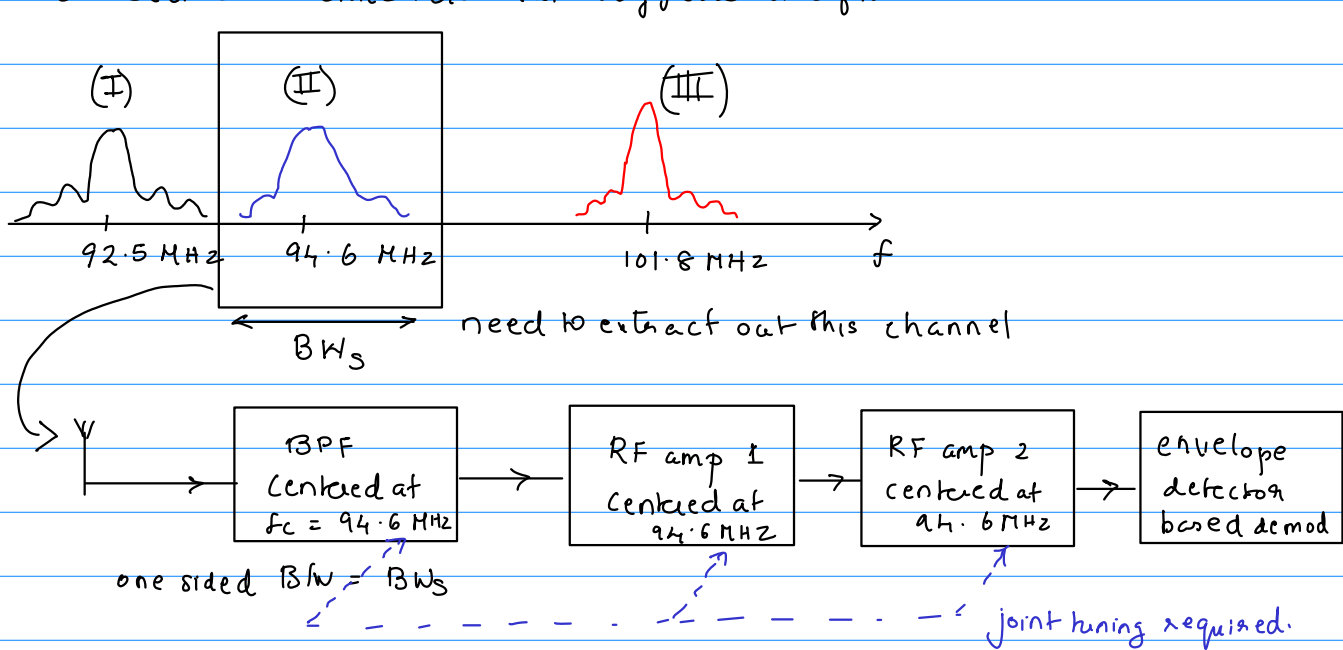 (I)
(II)
(III)
92.5 MHz
94.6 MHz
101.8 MHz
f
BWs
need to extract out this channel
BPF
Centered at
fc = 94.6 MHz
RF amp 1
Centered at
94.6 MHz
RF amp 2
centered at
94.6 MHz
envelope
detector
based demod
one sided B/W = BWs
joint tuning required.